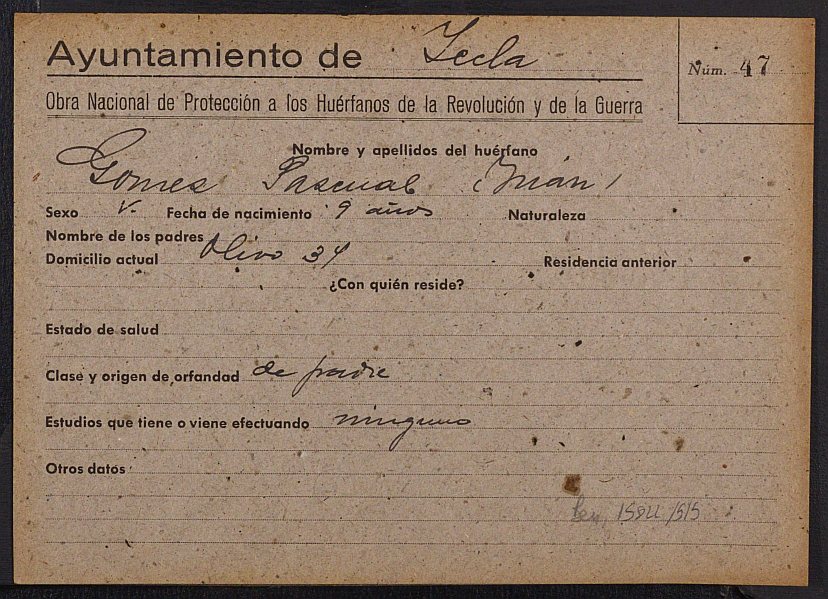 Ayuntamiento de Yecla
Núm. 47
Obra Nacional de Protección a los Huérfanos de la Revolución y de la Guerra
Nombre y apellidos del huérfano
Gomes Pascual (Juan)
Sexo V. Fecha de nacimiento 9 años Naturaleza
Nombre de los padres
Domicilio actual Olivo 34 Residencia anterior
¿Con quién reside?
Estado de salud
Clase y origen de orfandad de padre
Estudios que tiene o viene efectuando ninguno
Otros datos
1594/515